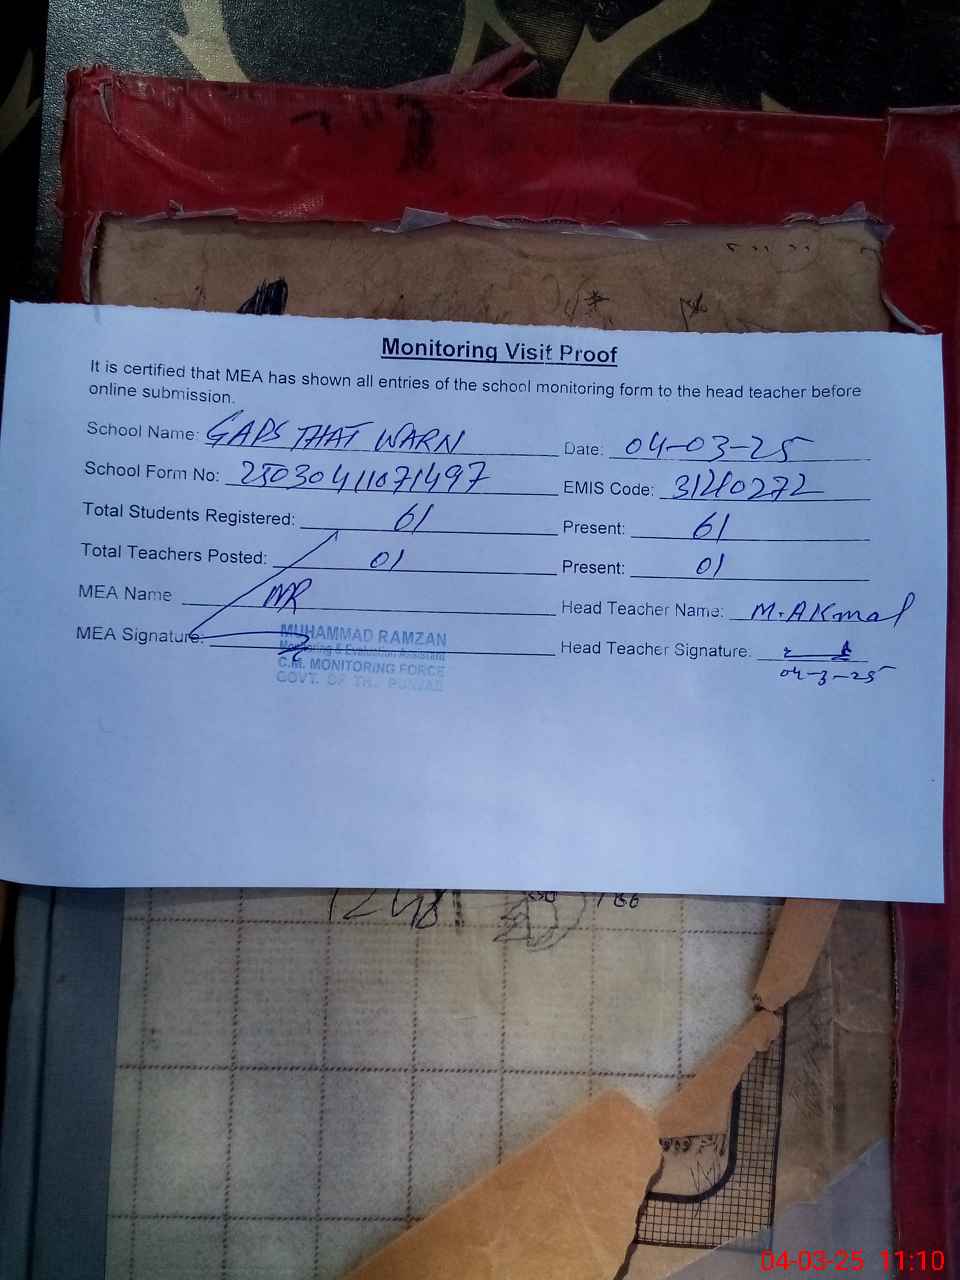 Monitoring Visit Proof
It is certified that MEA has shown all entries of the school monitoring form to the head teacher before
online submission.
School Name: GAPS THAT WARN Date: 04-03-25
School Form No: 25030411071497 EMIS Code: 31240272
Total Students Registered: 61 Present: 61
Total Teachers Posted: 01 Present: 01
MEA Name MR Head Teacher Name: M. AKmal
MEA Signature: Head Teacher Signature:
04-3-25
MUHAMMAD RAMZAN
Monitoring & Evaluation Assistant
C.M. MONITORING FORCE
GOVT. OF THE PUNJAB
04-03-25 11:10